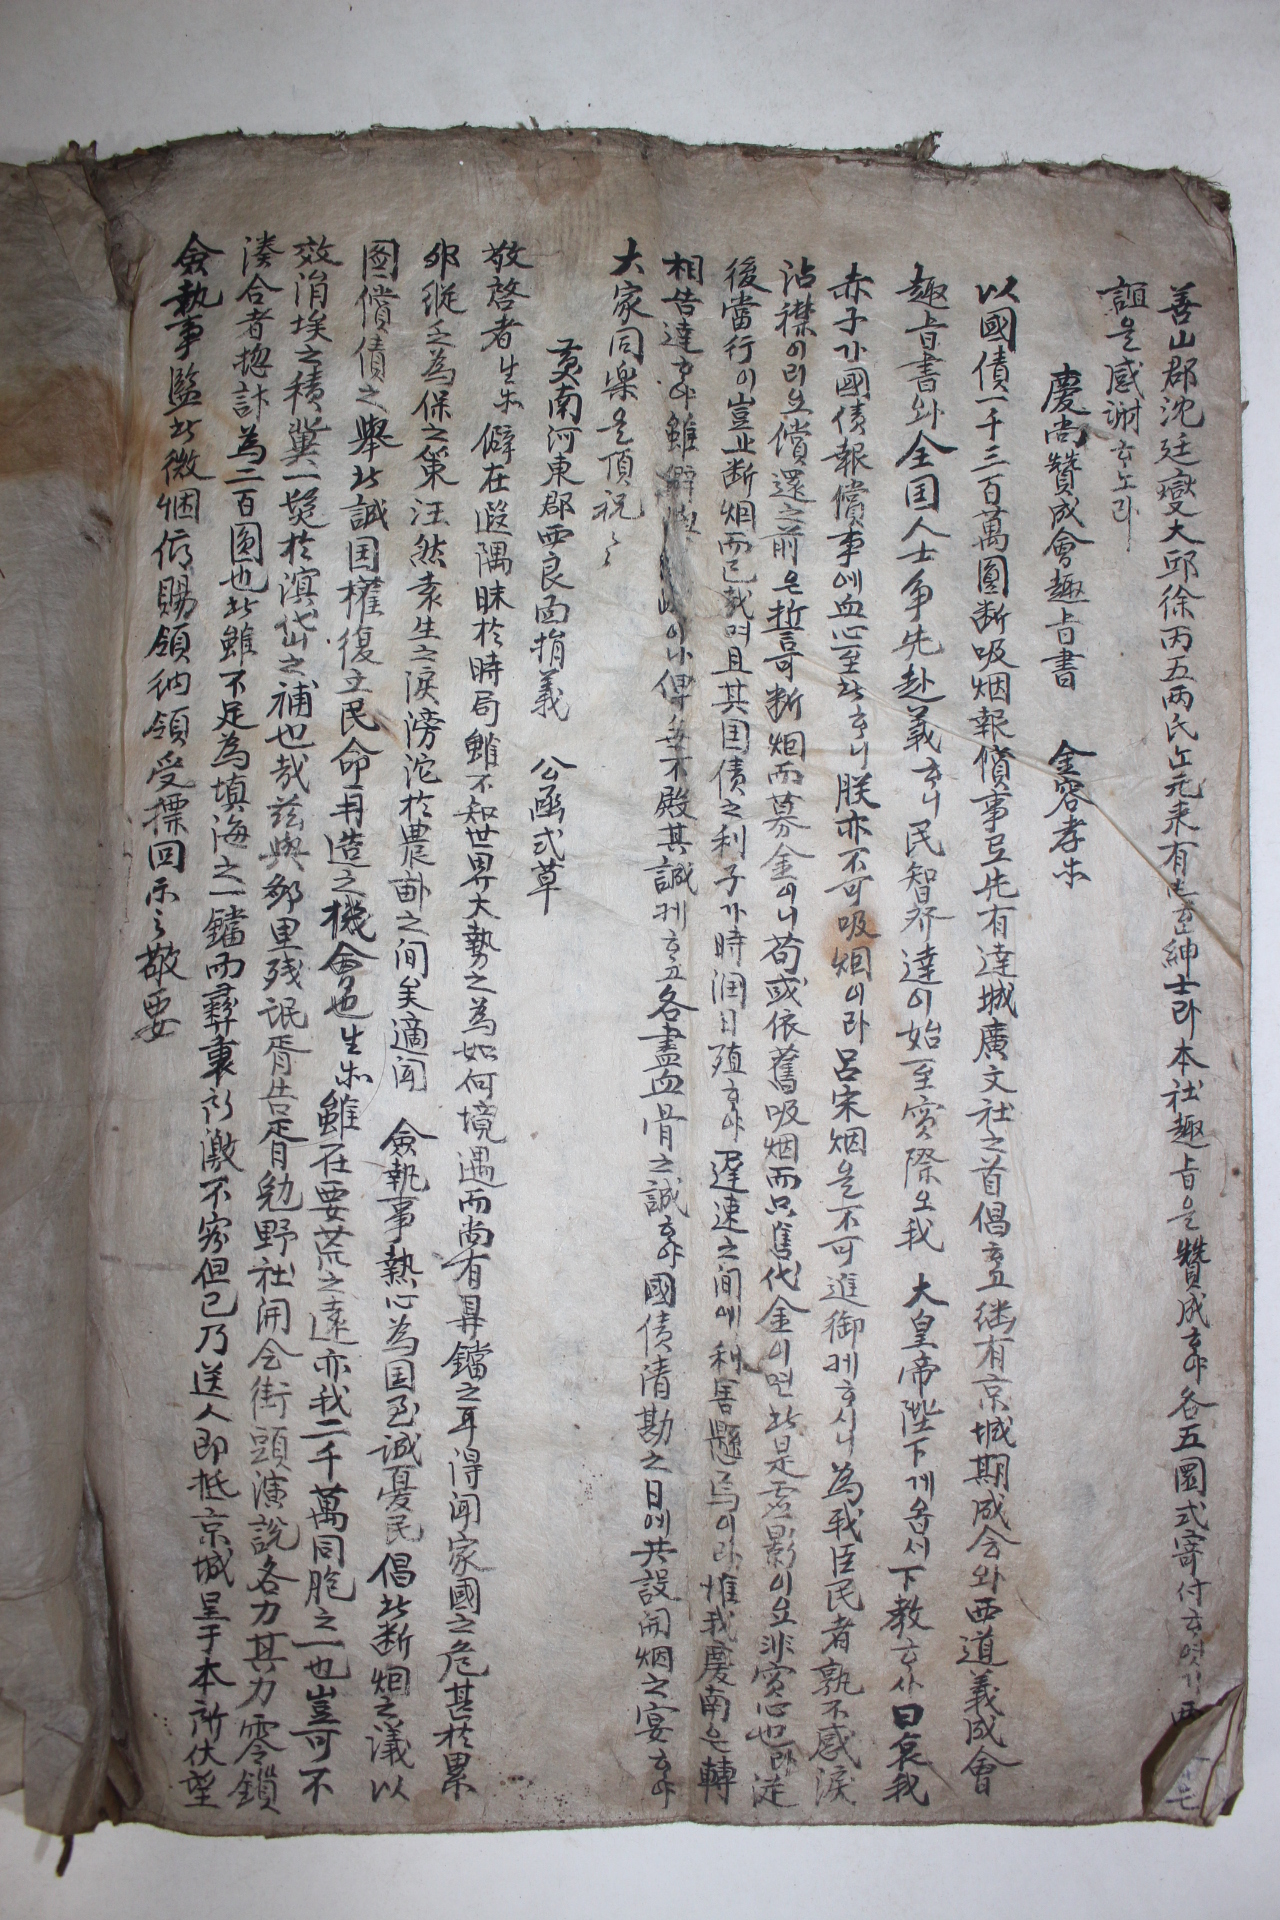 善山郡沈廷嶽大邱徐丙五兩氏는元来有志한紳士라本社趣旨을贊成하야各五圜式寄付하엿기両
誼을感謝하노라
慶尚贊成會趣旨書 金容孝等
以國債一千三百萬圓断吸烟報償事로先有達城廣文社之首倡하고継有京城期成会와西道義成會
趣旨書와全国人士争先赴義하니民智發達이始至實際오我 大皇帝陛下게옵서下教하사曰哀我
赤子가國債報償事에血心至此하니朕亦不可吸烟이라呂宋烟을不可進御케하시니為我臣民者孰不感淚
沾襟이리오償還之前은誓可断烟而募金이니苟或依舊吸烟而只售代金이면此是虛影이오非實心也即從
後當行이豈止断烟而已哉며且其国債之利子가時潤日殖하야遲速之間에利害懸焉이라惟我慶南은轉
相告達하야雖僻 이니俾無不殿其誠케하고各盡血骨之誠하야國債清勘之日에共設開烟之宴하야
大家同樂을頂祝〻
慶南河東郡西良面捐義 公函式草
敬啓者生等僻在遐隅昧於時局雖不知世界大勢之為如何境遇而尚有鼻鐺之耳得闻家國之危甚於累
卵縱乏為保之策汪然袁生之涙滂沱於農畝之间矣適闻 僉執事熱心為国至誠憂民倡此断烟之議以
圖償債之舉此誠国權復立民命再造之機會也生等雖在要荒之遠亦我二千萬同胞之一也豈可不
效涓埃之積冀一髪於溟岱之補也哉兹與鄉里残氓胥告胥勉野社開会街頭演說各力其力零鎖
湊合者揔計為二百圓也此雖不足為填海之一鐺而彝衷所激不容但已乃送人即抵京城呈于本所伏望
僉執事監此微悃俯賜領納領受標回示之敬要